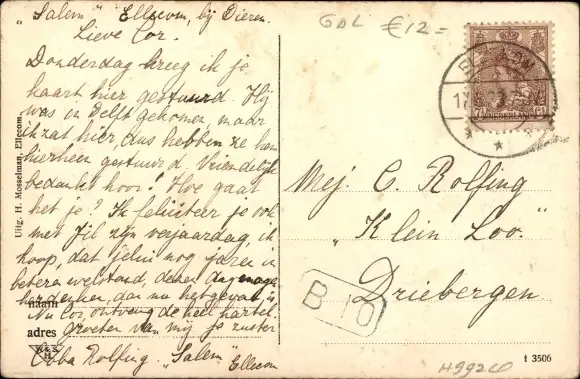 "Salem" Ellecom, bij Dieren.
Lieve Cor.
Donderdag kreeg ik je
kaart hier gestuurd. Hij
was in Delft gekomen, maar
ik zat hier, dus hebben ze hem
hierheen gestuurd. Vriendelijk
bedankt hoor! Hoe gaat
het je? Ik feliciteer je ook
met zijn verjaardag, ik
hoop, dat jelui nog jaren in
beteren welstand, dezen dag moge
herdenken, dan nu het geval is
Nu Cor, ontvang de heel hartel.
groeten van mij je zuster
Coba Rolfing. "Salem" Ellecom
naam
adres
Uitg. H. Mosselman, Ellecom.
GDL €12=
NEDERLAND
Mej. C. Rolfing
"Klein Loo."
Driebergen.
B 10
t 3506
H9920